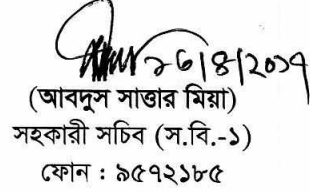 ২৬/৪/২০১৭
(আবদুস সাত্তার মিয়া)
সহকারী সচিব (স.বি.-১)
ফোন : ৯৫৭২১৮৫